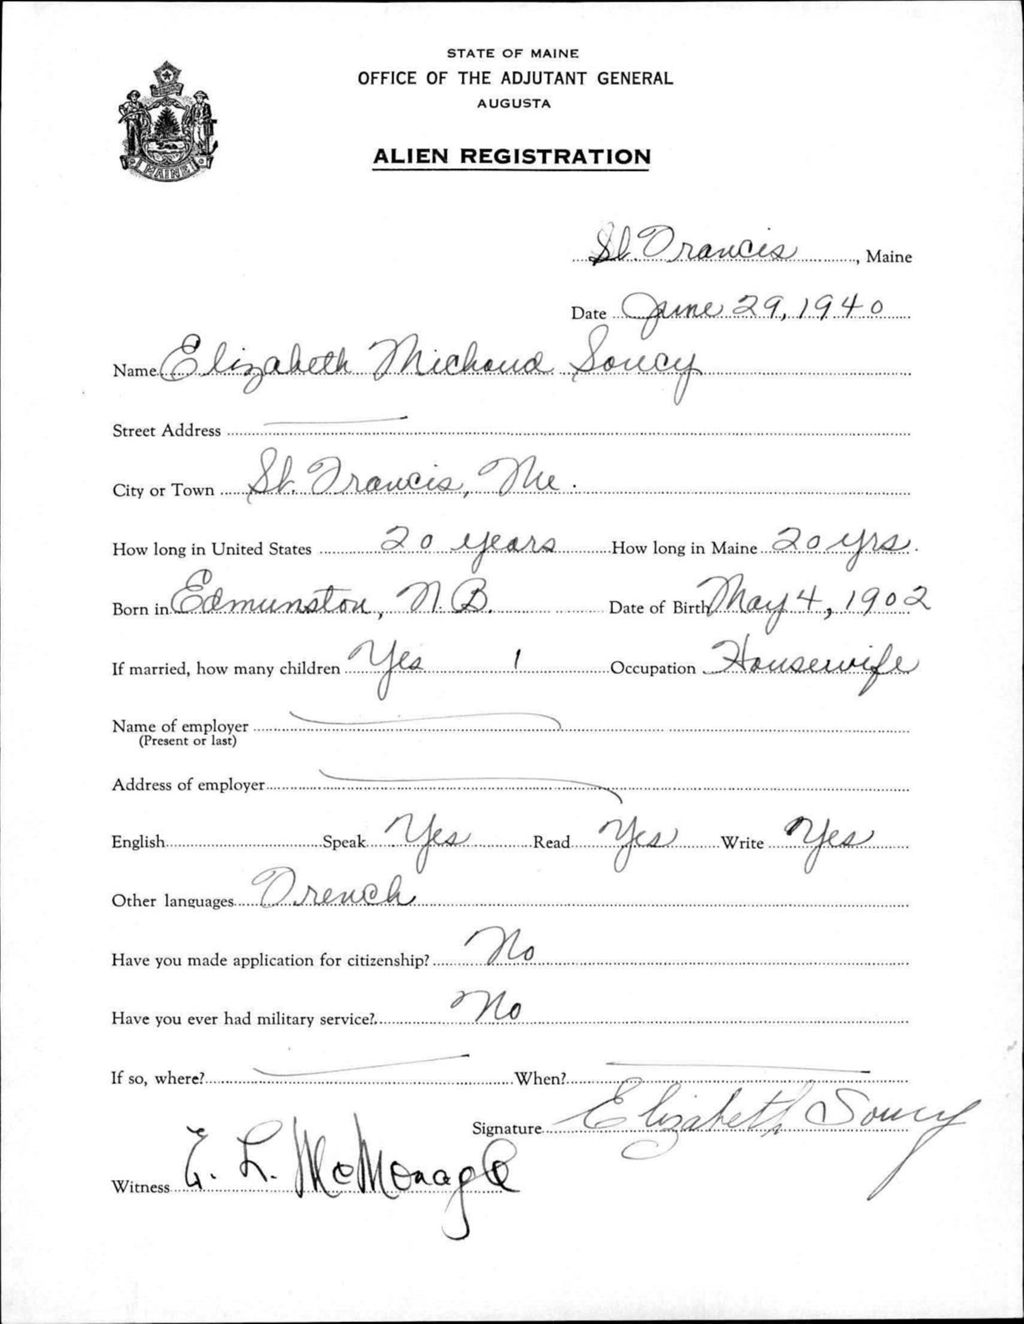 STATE OF MAINE
OFFICE OF THE ADJUTANT GENERAL
AUGUSTA
ALIEN REGISTRATION
MAINE
St. Francis, Maine
Date June 29, 1940
Name Elizabeth Michaud Soucy
Street Address
City or Town St. Francis, Me.
How long in United States 20 years How long in Maine 20 yrs.
Born in Edmunston, N.B. Date of Birth May 4, 1902
If married, how many children Yes 1 Occupation Housewife
Name of employer
(Present or last)
Address of employer
English Speak Yes Read Yes Write Yes
Other languages French
Have you made application for citizenship? No
Have you ever had military service? No
If so, where? When?
Signature Elizabeth Soucy
Witness E. L. McMonagle